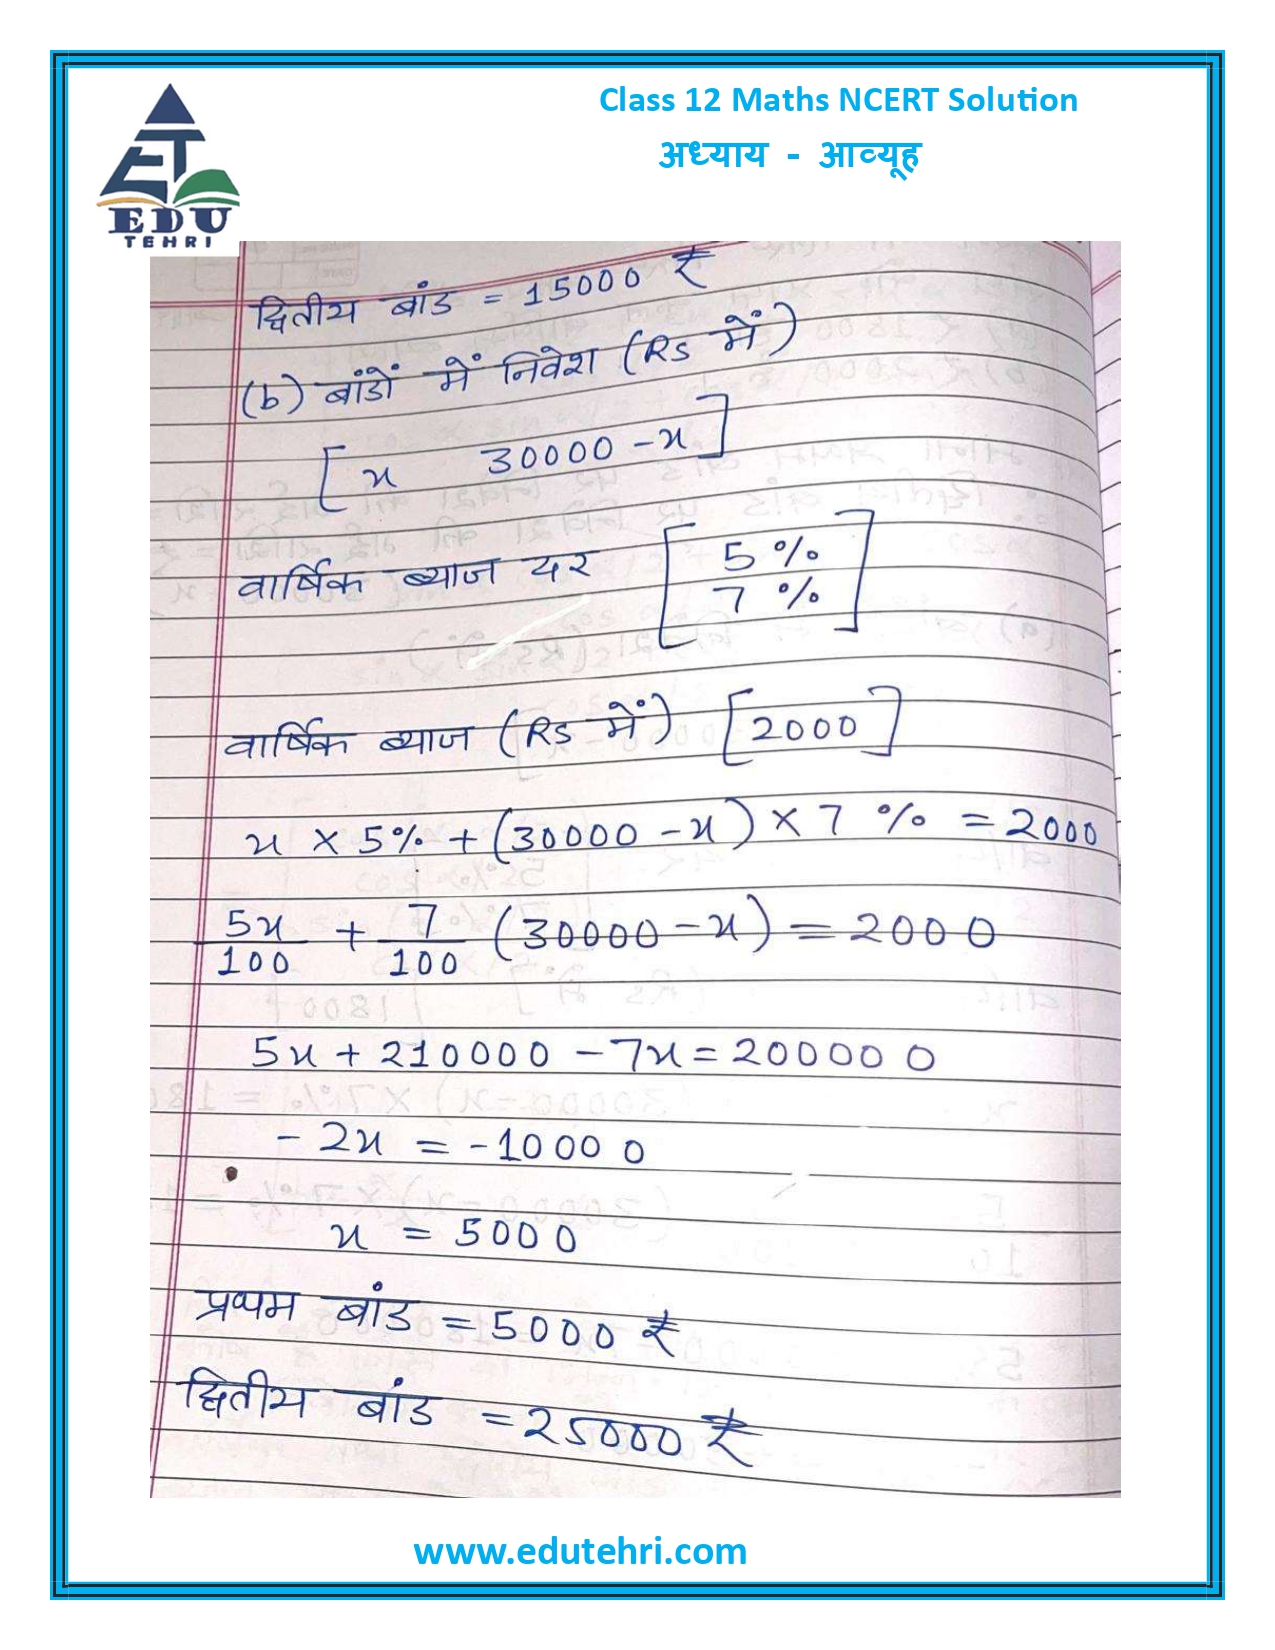 Class 12 Maths NCERT Solution
अध्याय - आव्यूह
EDU
TEHRI
द्वितीय बांड = 15000 ₹
(b) बांडों में निवेश (Rs में)
[x 30000 - x]
वार्षिक ब्याज दर [5%
7%]
वार्षिक ब्याज (Rs में) [2000]
x × 5% + (30000 - x) × 7% = 2000
5x/100 + 7/100 (30000 - x) = 2000
5x + 210000 - 7x = 200000
- 2x = -10000
x = 5000
प्रथम बांड = 5000 ₹
द्वितीय बांड = 25000 ₹
www.edutehri.com